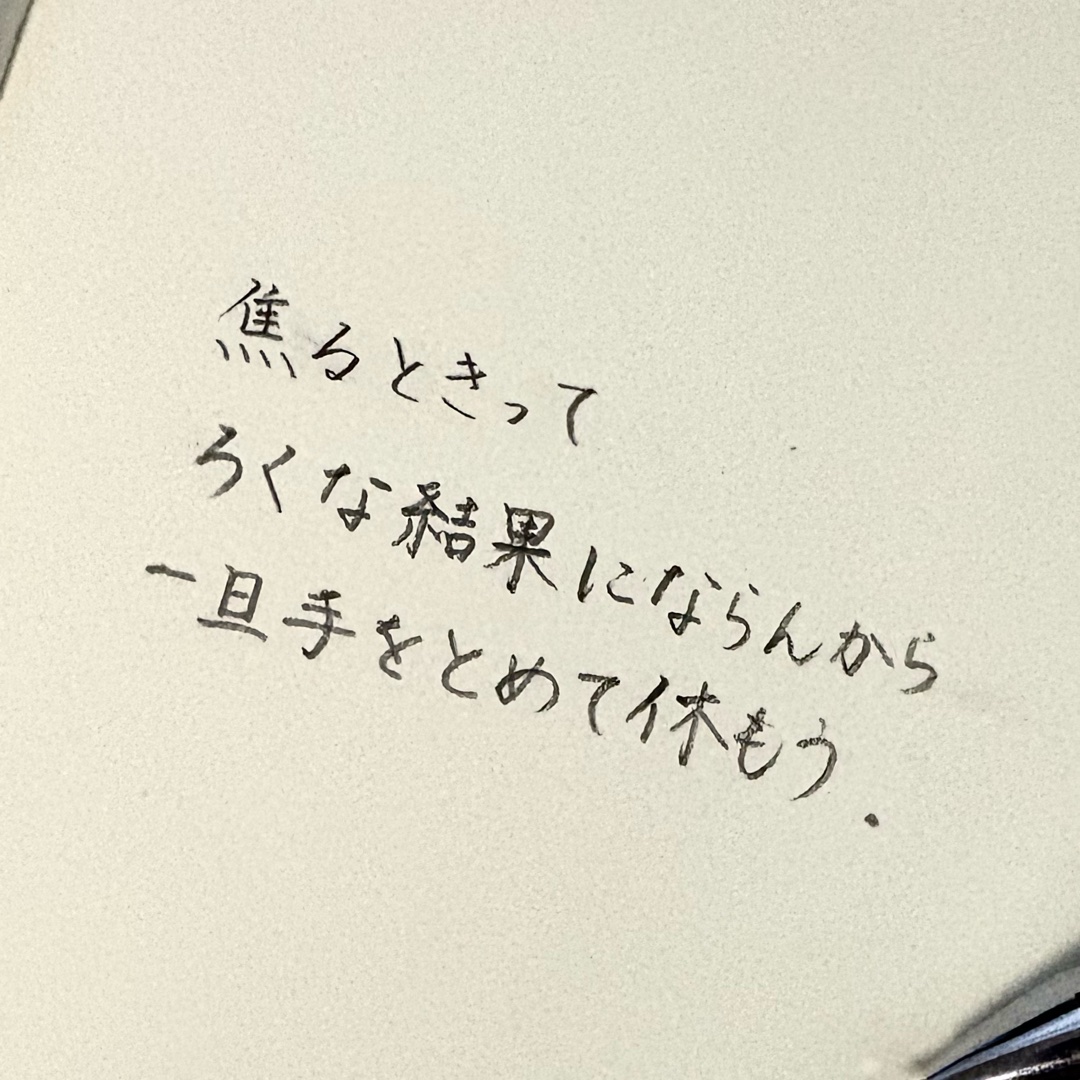 焦るときって
ろくな結果にならんから
一旦手をとめて休もう.